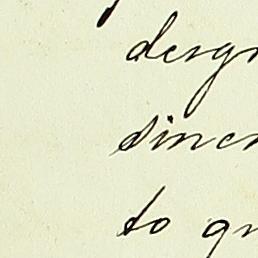 desig
sincer
to gr